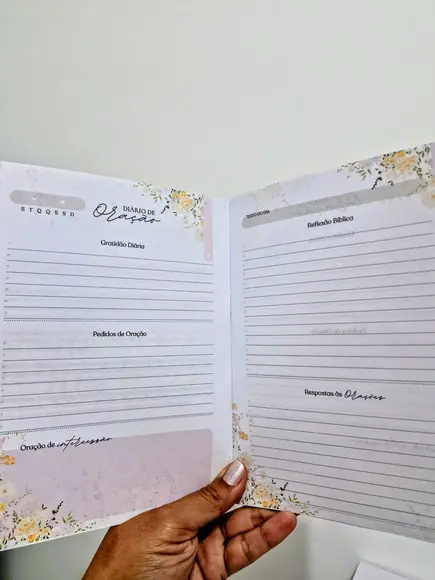 S T Q Q S S D
DIÁRIO DE
Oração
Gratidão Diária
Pedidos de Oração
Oração de intercessão
TEXTO DO DIA
Reflexão Bíblica
Respostas às Orações